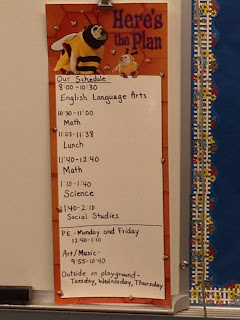 Here's
the Plan
Our Schedule
8:00 - 10:30
English Language Arts
10:30 - 11:00
Math
11:03 - 11:38
Lunch
11:40 - 12:40
Math
1:10 - 1:40
Science
1:40 - 2:10
Social Studies
P.E. - Monday and Friday
12:40 - 1:10
Art/Music -
9:55 - 10:40
Outside on playground -
Tuesday, Wednesday, Thursday